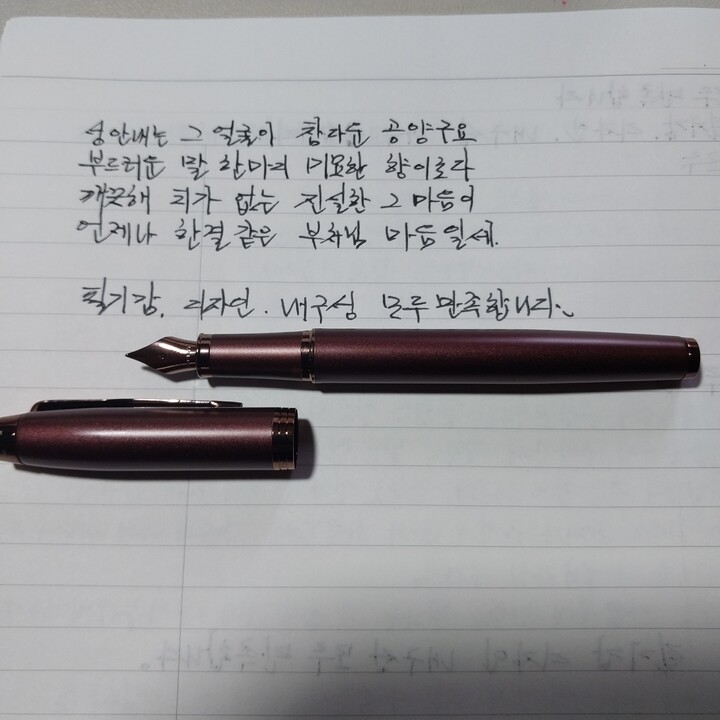 성안내는 그 얼굴이 참다운 공양구요
부드러운 말 한마디 미묘한 향이로다
깨끗해 티가 없는 진실한 그 마음이
언제나 한결같은 부처님 마음일세.
필기감, 디자인. 내구성 모두 만족합니다~